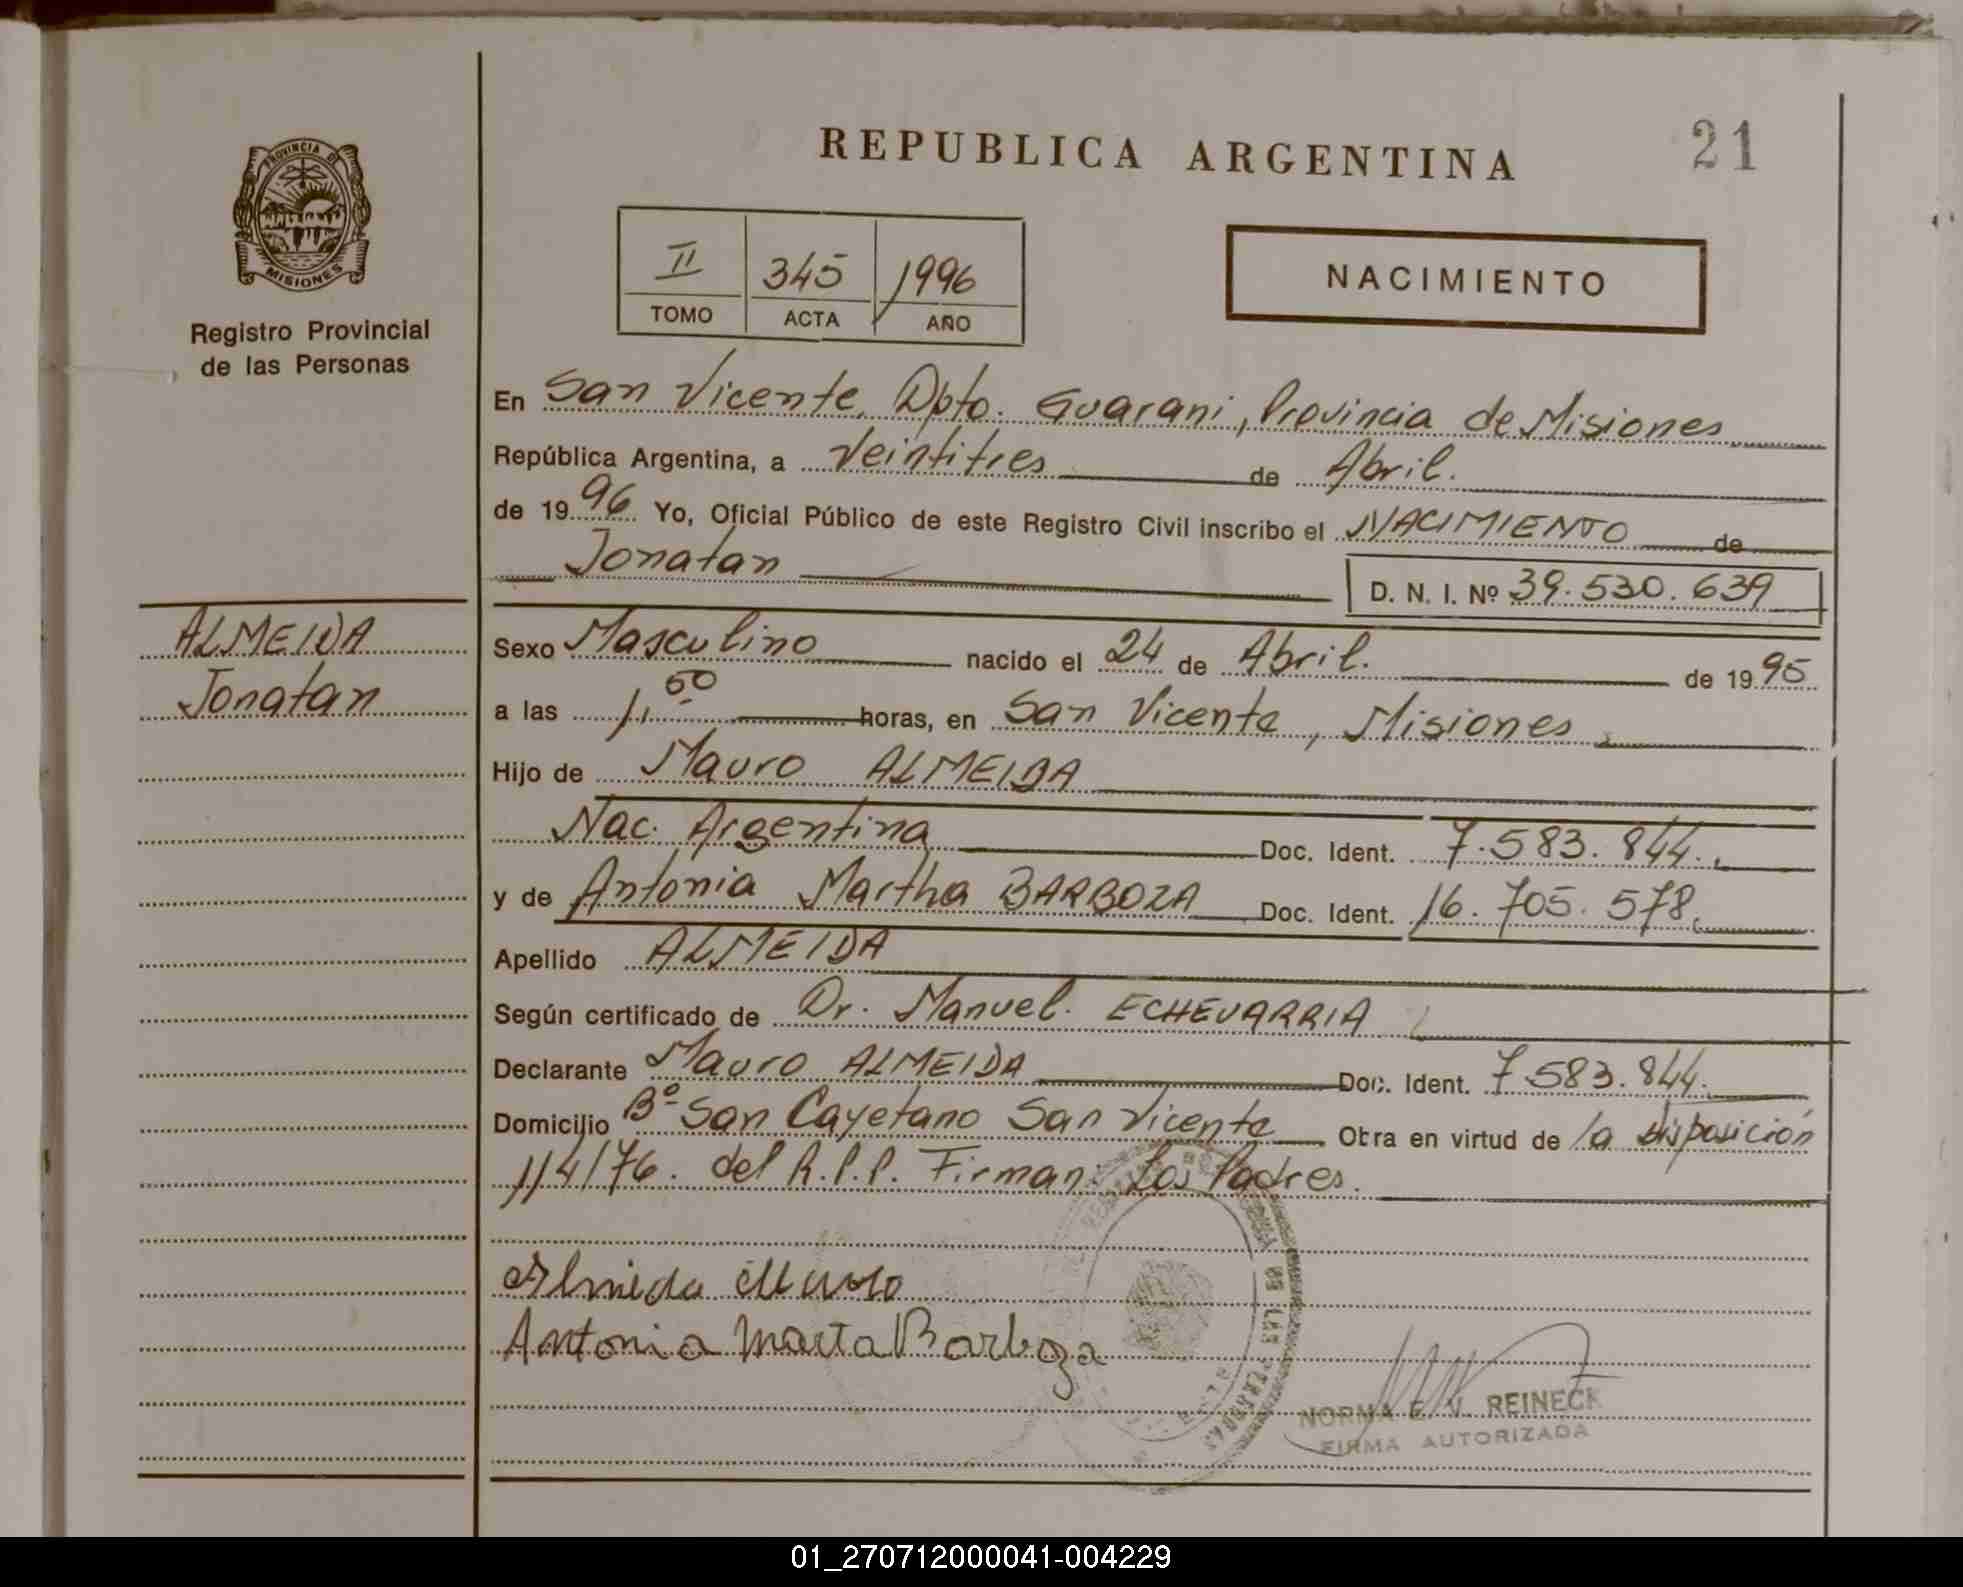 REPUBLICA ARGENTINA
21
PROVINCIA DE
MISIONES
Registro Provincial
de las Personas
II 345 1996
TOMO ACTA AÑO
NACIMIENTO
En San Vicente, Dpto. Guarani, Provincia de Misiones
República Argentina, a Veintitres de Abril.
de 1996 Yo, Oficial Público de este Registro Civil inscribo el NACIMIENTO de
Jonatan D. N. I. Nº 39.530.639
ALMEIDA
Jonatan
Sexo Masculino nacido el 24 de Abril. de 1995
a las 1,50 horas, en San Vicente, Misiones
Hijo de Mauro ALMEIDA
Nac. Argentina Doc. Ident. 7.583.844.
y de Antonia Martha BARBOZA Doc. Ident. 16.705.578.
Apellido ALMEIDA
Según certificado de Dr. Manuel. ECHEVARRIA
Declarante Mauro ALMEIDA Doc. Ident. 7.583.844.
Domicilio Bº San Cayetano San Vicente Obra en virtud de la disposición
1/4/76. del R.P.P. Firman. Los Padres.
Almeida Mauro
Antonia Marta Barboza
DE LAS PERSONAS
NORMA E. V. REINECK
FIRMA AUTORIZADA
01_270712000041-004229